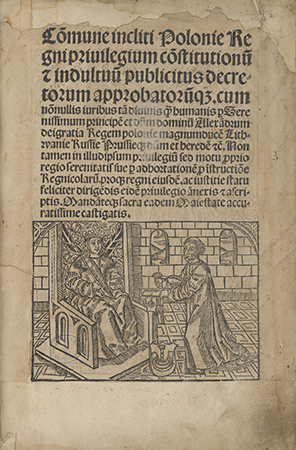 Cōmune incliti Polonie Re
gni priuilegium cōstitutionū
⁊ indultuū publicitus decre-
torum approbatorūqȝ. cum
nōnullis iuribus tā diuinis ꝙ̄ humanis ꝑ Sere-
nissimum principē et dominū dominū Alexādrum
dei gratia Regem polonie magnum ducē Lith-
wanie Russie Prussieqȝ dnm et heredē ⁊c̄. Non
tamen in illud ipsum priuilegiū sed motu ꝓprio
regio serenitatis sue ꝑ adhortationē, ꝑ īstructiōe
Regnicolarū. ꝓqȝ regni eiusdē. ac iusticie statu
feliciter dirigēdis eidē priuilegio ānexis ⁊ ascri-
ptis. Mandāteqȝ sacra eadem Maiestate accu-
ratissime castigatis.